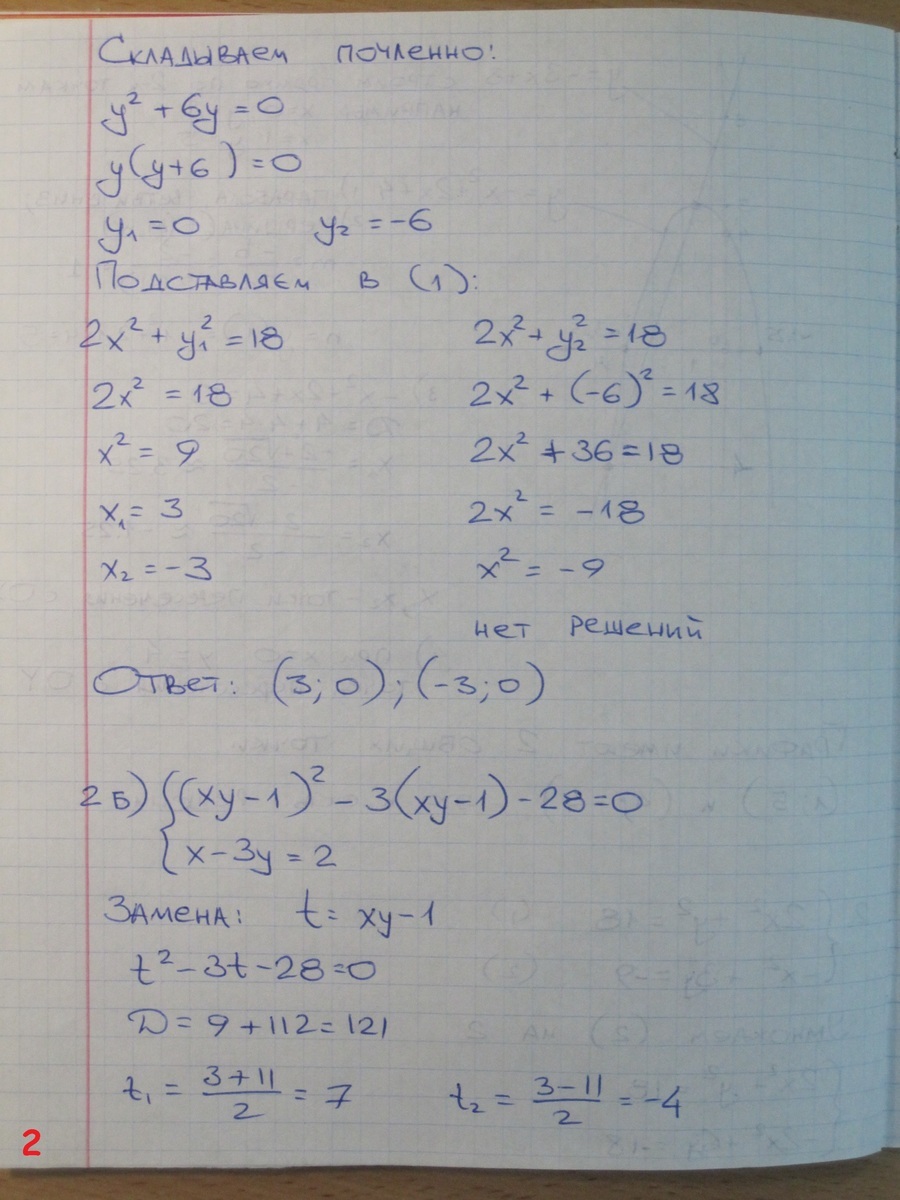 Складываем почленно:
y² + 6y = 0
y(y+6) = 0
y₁ = 0 y₂ = -6
Подставляем в (1):
2x² + y₁² = 18 2x² + y₂² = 18
2x² = 18 2x² + (-6)² = 18
x² = 9 2x² + 36 = 18
x₁ = 3 2x² = -18
x₂ = -3 x² = -9
нет решений
Ответ: (3; 0); (-3; 0)
2 б) { (xy-1)² - 3(xy-1) - 28 = 0
x - 3y = 2
Замена: t = xy - 1
t² - 3t - 28 = 0
D = 9 + 112 = 121
t₁ = (3+11)/2 = 7 t₂ = (3-11)/2 = -4
2